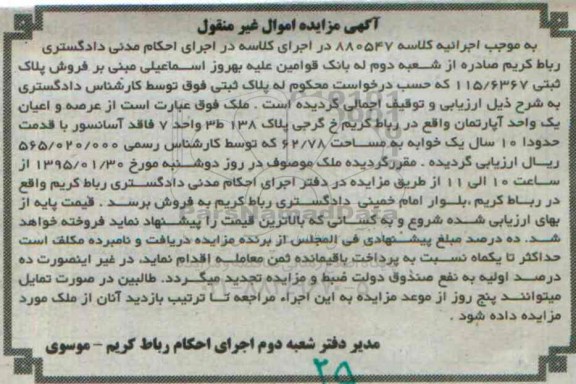 آگهی مزایده اموال غیر منقول
به موجب اجرائیه کلاسه ۸۸۰۵۴۷ در اجرای کلاسه در اجرای احکام مدنی دادگستری
رباط کریم صادره از شعبه دوم له بانک قوامین علیه بهروز اسماعیلی مبنی بر فروش پلاک
ثبتی ۱۱۵/۶۳۶۷ که حسب درخواست محکوم له پلاک ثبتی فوق توسط کارشناس دادگستری
به شرح ذیل ارزیابی و توقیف اجمالی گردیده است . ملک فوق عبارت است از عرصه و اعیان
یک واحد آپارتمان واقع در رباط کریم خ گرجی پلاک ۱۳۸ ط۳ واحد ۷ فاقد آسانسور با قدمت
حدودا ۱۰ سال یک خوابه به مساحت ۶۲/۷۸ که توسط کارشناس رسمی ۵۶۵/۰۲۰/۰۰۰
ریال ارزیابی گردیده . مقررگردیده ملک موصوف در روز دوشنبه مورخ ۱۳۹۵/۰۱/۳۰ از
ساعت ۱۰ الی ۱۱ از طریق مزایده در دفتر اجرای احکام مدنی دادگستری رباط کریم واقع
در رباط کریم ،بلوار امام خمینی دادگستری رباط کریم به فروش برسد . قیمت پایه از
بهای ارزیابی شده شروع و به کسانی که بالاترین قیمت را پیشنهاد نماید فروخته خواهد
شد. ده درصد مبلغ پیشنهادی فی المجلس از برنده مزایده دریافت و نامبرده مکلف است
حداکثر تا یکماه نسبت به پرداخت باقیمانده ثمن معامله اقدام نماید، در غیر اینصورت ده
درصد اولیه به نفع صندوق دولت ضبط و مزایده تجدید میگردد. طالبین در صورت تمایل
میتوانند پنج روز از موعد مزایده به این اجراء مراجعه تا ترتیب بازدید آنان از ملک مورد
مزایده داده شود .
مدیر دفتر شعبه دوم اجرای احکام رباط کریم - موسوی
۲۵